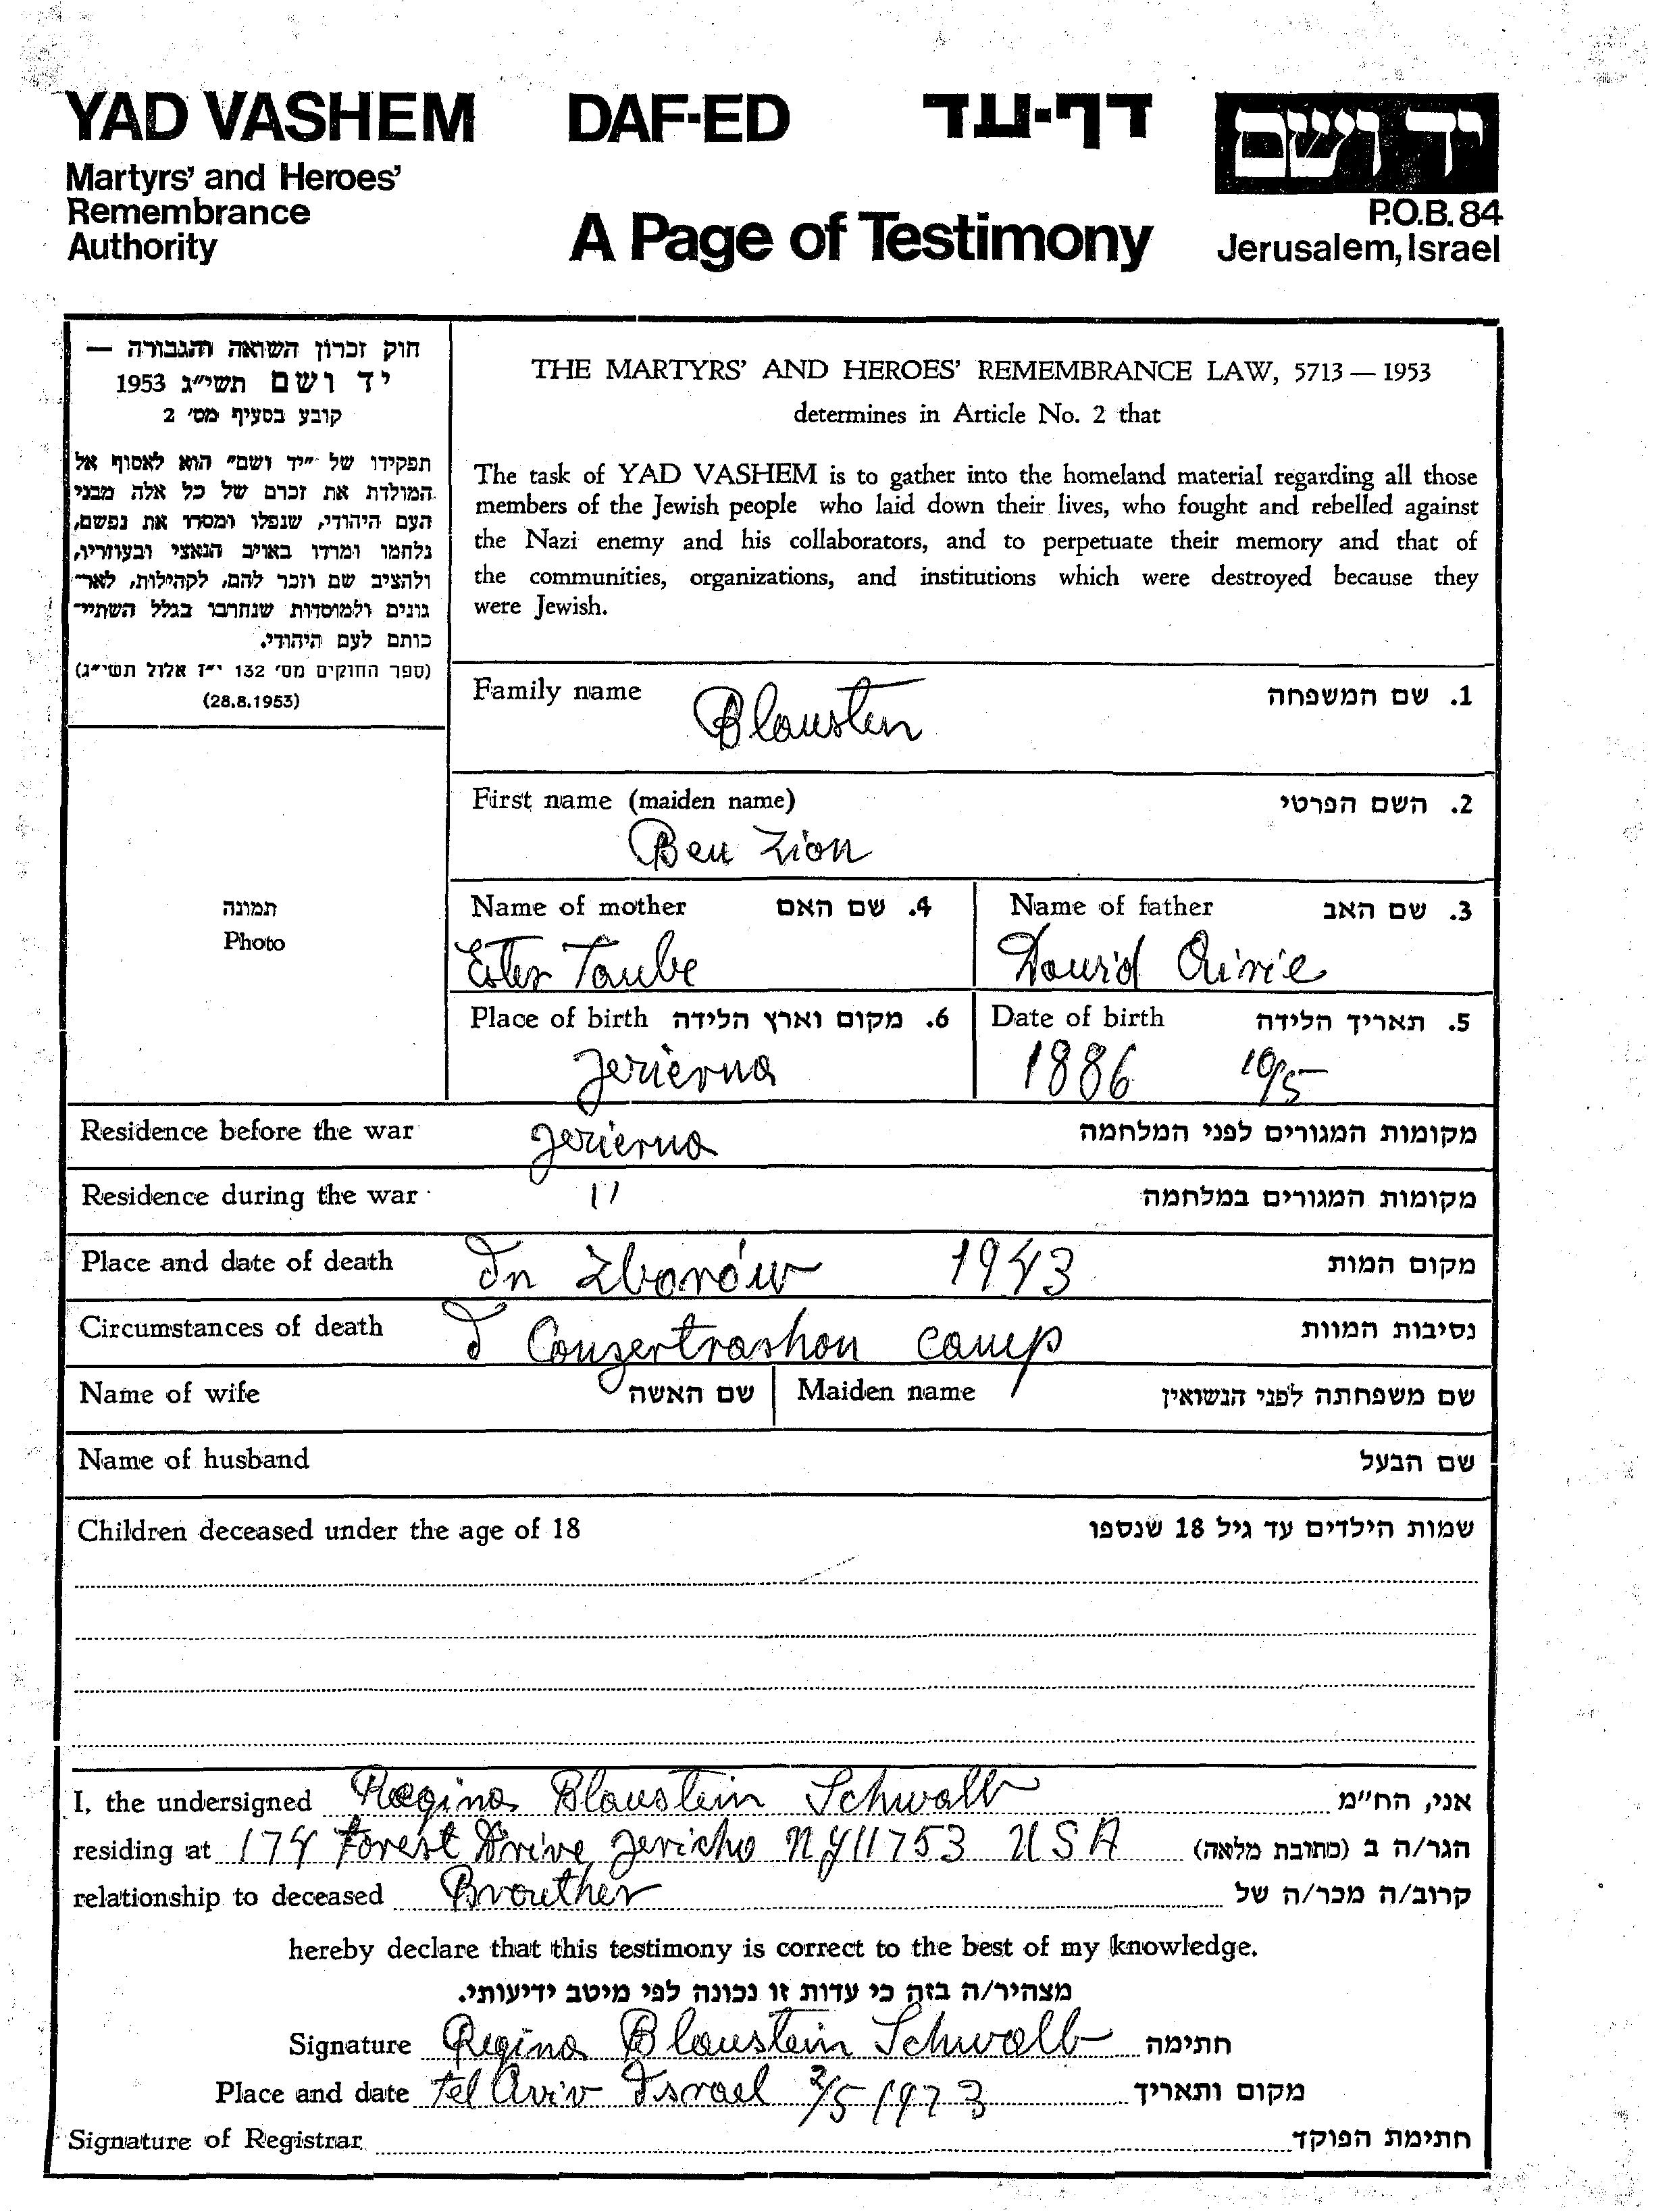 YAD VASHEM DAF-ED דף-עד יד ושם
Martyrs' and Heroes'
Remembrance
Authority
A Page of Testimony
P.O.B. 84
Jerusalem, Israel
חוק זכרון השואה והגבורה —
יד ושם תשי"ג 1953
קובע בסעיף מס' 2
תפקידו של "יד ושם" הוא לאסוף אל
המולדת את זכרם של כל אלה מבני
העם היהודי, שנפלו ומסרו את נפשם,
נלחמו ומרדו באויב הנאצי ובעוזריו,
ולהציב שם וזכר להם, לקהילות, לאר־
גונים ולמוסדות שנחרבו בגלל השתיי־
כותם לעם היהודי.
(ספר החוקים מס' 132 י"ז אלול תשי"ג)
(28.8.1953)
THE MARTYRS' AND HEROES' REMEMBRANCE LAW, 5713 — 1953
determines in Article No. 2 that
The task of YAD VASHEM is to gather into the homeland material regarding all those
members of the Jewish people who laid down their lives, who fought and rebelled against
the Nazi enemy and his collaborators, and to perpetuate their memory and that of
the communities, organizations, and institutions which were destroyed because they
were Jewish.
תמונה
Photo
Family name 1. שם המשפחה
Blaustein
First name (maiden name) 2. השם הפרטי
Ben Zion
Name of mother 4. שם האם Name of father 3. שם האב
Ester Taube Dawid
Place of birth 6. מקום וארץ הלידה Date of birth 5. תאריך הלידה
Jezierna 1886 10/5
Residence before the war Jezierna מקומות המגורים לפני המלחמה
Residence during the war " מקומות המגורים במלחמה
Place and date of death In Zborów 1943 מקום המות
Circumstances of death I Conzertrashon camp נסיבות המוות
Name of wife שם האשה Maiden name שם משפחתה לפני הנשואין
Name of husband שם הבעל
Children deceased under the age of 18 שמות הילדים עד גיל 18 שנספו
I, the undersigned Regina Blaustein Schwalb אני, הח"מ
residing at 174 Forest Drive Jericho NY11753 USA הגר/ה ב (כתובת מלאה)
relationship to deceased Brouther קרוב/ה מכר/ה של
hereby declare that this testimony is correct to the best of my knowledge.
מצהיר/ה בזה כי עדות זו נכונה לפי מיטב ידיעותי.
Signature Regina Blaustein Schwalb חתימה
Place and date Tel Aviv Israel 2/5 1973 מקום ותאריך
Signature of Registrar חתימת הפוקד